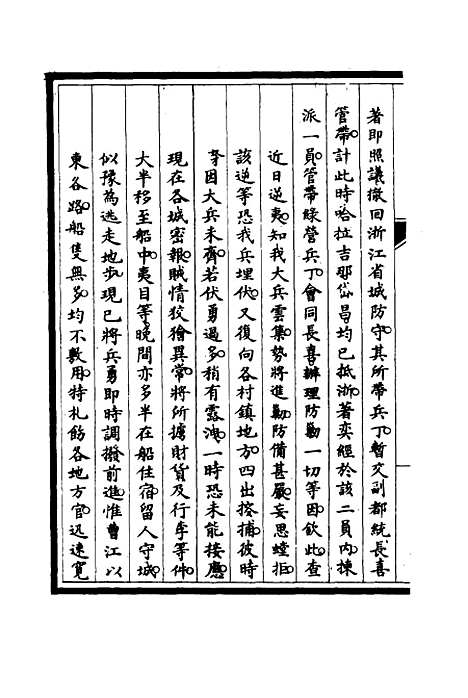 著即照議撤回浙江省城防守其所帶兵丁暫交副都統長喜
管帶計此時哈拉吉那岱昌均已抵浙著奕經於該二員內揀
派一員管帶綠營兵丁會同長喜辦理防勦一切等因欽此查
近日逆夷知我大兵雲集勢將進勦防備甚嚴妄思螳拒
該逆等恐我兵埋伏又復向各村鎮地方四出搜捕彼時
等因大兵未齊若伏勇過多稍有露洩一時恐未能接應
現在各城密報賊情狡獪異常將所擄財貨及行李等件
大半移至船中夷目等晚間亦多半在船住宿留人守城
似豫為逃走地步現已將兵勇即時調撥前進惟曹江以
東各路船隻無多均不敷用特札飭各地方官迅速寬